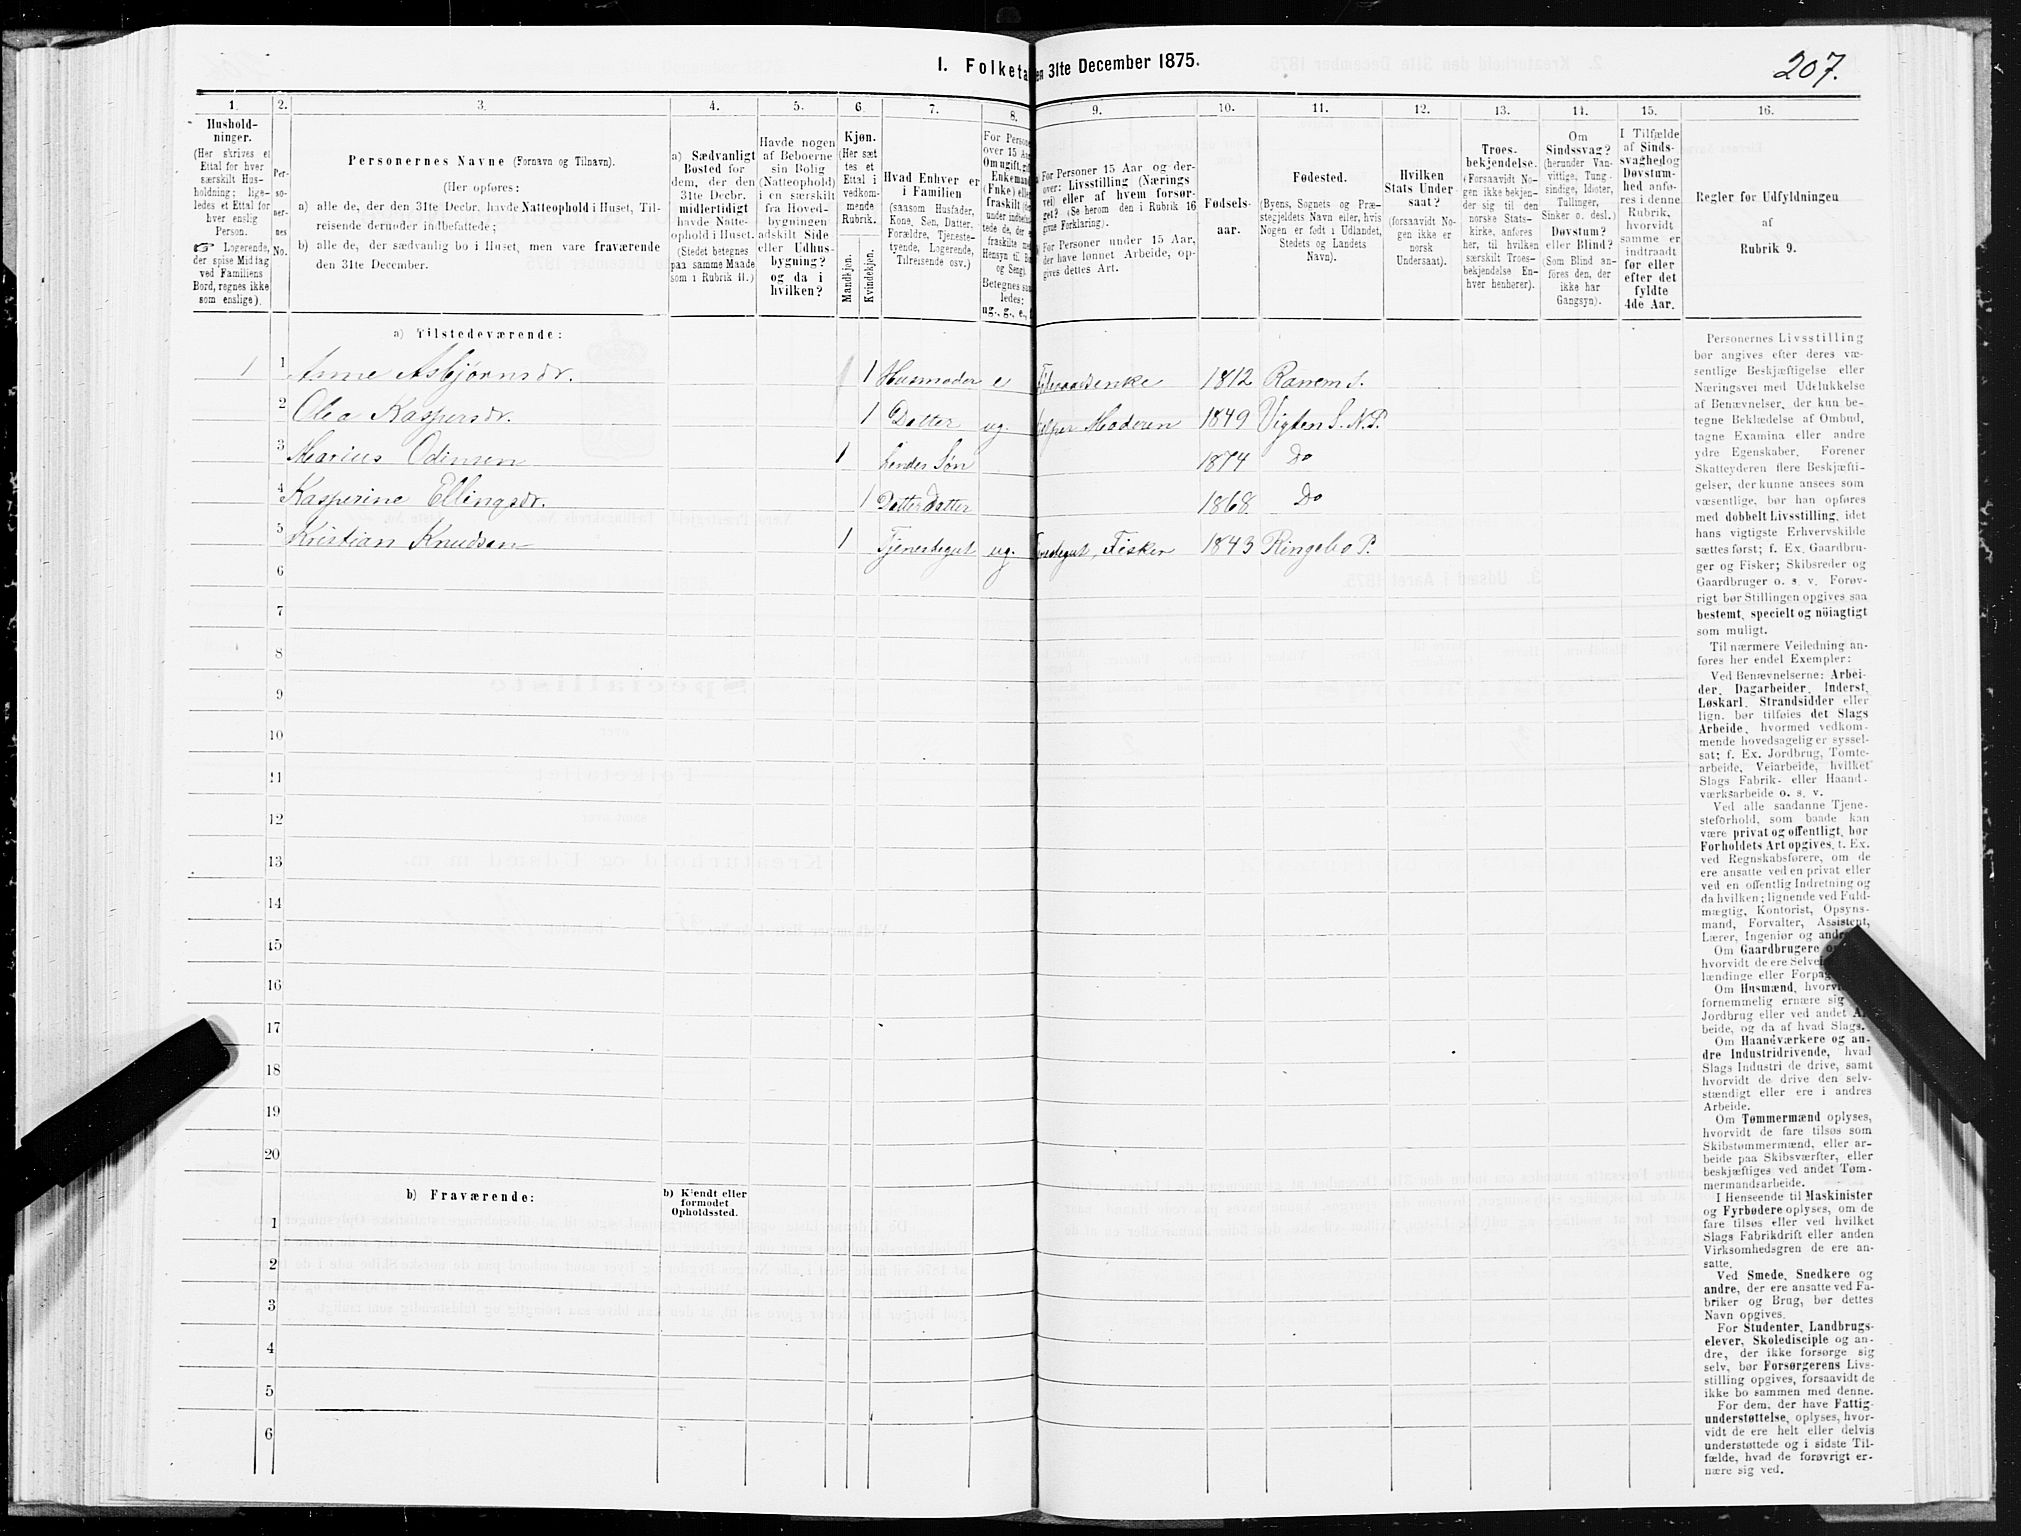 I. Folketa en 31te December 1875.
207.
1.
2.
3.
4.
5.
6.
7.
8.
9.
10.
11.
12.
13.
14.
15.
16.
Hushold-
ninger.
(Her skrives et
Ettal for hver
særskilt Hus-
holdning; lige-
ledes et Ettal for
hver enslig
Person.
☞ Logerende,
der spise Middag
ved Familiens
Bord, regnes ikke
som enslige).
Per-
so-
ner-
nes
No.
Personernes Navne (Fornavn og Tilnavn).
(Her opføres:
a) alle de, der den 31te Decbr. havde Natteophold i Huset, Til-
reisende derunder indbefattede;
b) alle de, der sædvanlig bo i Huset, men vare fraværende
den 31te December.
a) Sædvanligt
Bosted for
dem, der den
31te Decbr.
midlertidigt
havde Natte-
ophold i Huset.
(Stedet betegnes
paa samme Maade
som i Rubrik 11.)
Havde nogen
af Beboerne
sin Bolig
(Natteophold)
i en særskilt
fra Hoved-
bygningen
adskilt Side
eller Udhus-
bygning?
og da i
hvilken?
Kjøn.
(Her sæt
tes et
Ettal i
vedkom-
mende
Rubrik.
Mandkjøn.
Kvindekjøn.
Hvad Enhver er
i Familien
(saasom Husfader,
Kone, Søn, Datter,
Forældre, Tjeneste-
tyende, Logerende,
Tilreisende osv.)
For Persone
over 15 Aa
Om ugift, gif
Enkemand
(Enke) elle
fraskilt (de
under indbefat
tede de, der e
fraskilte me
Hensyn til Bo
og Seng).
Betegnes saa
ledes:
ug., g., e., f
For Personer 15 Aar og der-
over: Livsstilling (Nærings
vei) eller af hvem forsør-
get? (Se herom den i Rubrik 16
givne Forklaring).
For Personer under 15 Aar,
der have lønnet Arbeide, op-
gives dettes Art.
Fødsels-
aar.
Fødested.
(Byens, Sognets og Præ-
stegjeldets Navn eller, hvis
Nogen er født i Udlandet,
Stedets og Landets
Navn).
Hvilken
Stats Under-
saat?
(forsaavidt No-
gen ikke er
norsk
Undersaat).
Troes-
bekjendelse.
(Forsaavidt No-
gen ikke bekjen-
der sig til den
norske Stats-
kirke, anføres
her, til hvilken
særskilt Troes-
bekjendelse En-
hver henhører).
Om
Sindssvag?
(herunder Van-
vittige, Tung-
sindige, Idioter,
Tullinger,
Sinker o. desl.)
Døvstum?
eller Blind?
(Som Blind an-
føres den, der
ikke har
Gangsyn).
I Tilfælde
af Sinds-
svaghed og
Døvstum-
hed anfø-
res i denne
Rubrik,
hvorvidt
samme er
indtraadt
før eller
efter det
fyldte
4de Aar.
Regler for Udfyldningen
af
Rubrik 9.
a) Tilstedeværende:
1 1 Anne Asbjørnsdr. 1 Husmoder e Enke 1812 Ranem S.
2 Olea Kaspersdr. 1 Datter ug. Moderen 1849 Vigten S. N.P.
3 Marius Odinsen 1 hendes Søn 1874 Do
4 Kasperine Ellingsdr. 1 Datterdatter 1868 Do
5 Kristian Knudsen 1 Tjenestegut ug. Fisker 1843 Ringebo P.
6
7
8
9
10
11
12
13
14
15
16
17
18
19
20
b) Fraværende:
b) Kjendt eller
formodet
Opholdssted.
1
2
3
4
5
6
Personernes Livsstilling
bør angives efter deres væ-
sentlige Beskjæftigelse eller
Næringsvei med Udelukkelse
af Benævnelser, der kun be-
tegne Beklædelse af Ombud,
tagne Examina eller andre
ydre Egenskaber. Forener
Skatteyderen flere Beskjæfti-
gelser, der kunne ansees som
væsentlige, bør han opføres
med dobbelt Livsstilling, idet
hans vigtigste Erhvervskilde
sættes først; f. Ex. Gaardbru-
ger og Fisker; Skibsreder og
Gaardbruger o. s. v. Forøv-
rigt bør Stillingen opgives saa
bestemt, specielt og nöiagtigt
som muligt.
Til nærmere Veiledning an-
føres her endel Exempler:
Ved Benævnelserne: Arbei-
der, Dagarbeider, Inderst,
Løskarl, Strandsidder eller
lign. bør tilføies det Slags
Arbeide, hvormed vedkom-
mende hovedsagelig er syssel-
sat; f. Ex. Jordbrug, Tomte-
arbeide, Veiarbeide, hvilket
Slags Fabrik- eller Haand-
værksarbeide o. s. v.
Ved alle saadanne Tjene-
steforhold, som baade kan
være privat og offentligt, bør
Forholdets Art opgives, t. Ex.
ved Regnskabsførere, om de
ere ansatte ved en privat eller
ved en offentlig Indretning og
da hvilken; lignende ved Fuld-
mægtig, Kontorist, Opsyns-
mand, Forvalter, Assistent,
Lærer, Ingeniør og andre
Om Gaardbrugere
hvorvidt de ere Selve
lændinge eller Forpag
Om Husmænd, hvorv
fornemmelig ernære sig
Jordbrug eller ved andet Ar
beide, og da af hvad Slags.
Om Haandværkere og an-
dre Industridrivende, hvad
Slags Industri de drive, samt
hvorvidt de drive den selv-
stændigt eller ere i andres
Arbeide.
Om Tømmermænd oplyses,
hvorvidt de fare tilsøs som
Skibstømmermænd, eller ar-
beide paa Skibsværfter, eller
beskjæftiges ved andet Tøm-
mermandsarbeide.
I Henseende til Maskinister
og Fyrbødere oplyses, om de
fare tilsøs eller ved hvilket
Slags Fabrikdrift eller anden
Virksomhedsgren de ere an-
satte.
Ved Smede, Snedkere og
andre, der ere ansatte ved Fa-
briker og Brug, bør dettes
Navn opgives.
For Studenter, Landbrugs-
elever, Skoledisciple og an-
dre, der ikke forsørge sig
selv, bør Forsørgerens Livs-
stilling opgives, forsaavidt de
ikke bo sammen med denne.
For dem, der have Fattig-
understøttelse, oplyses, hvor-
vidt de ere helt eller delvis
understøttede og i sidste Til-
fælde, hvad de forøvrigt er-
nære sig ved.